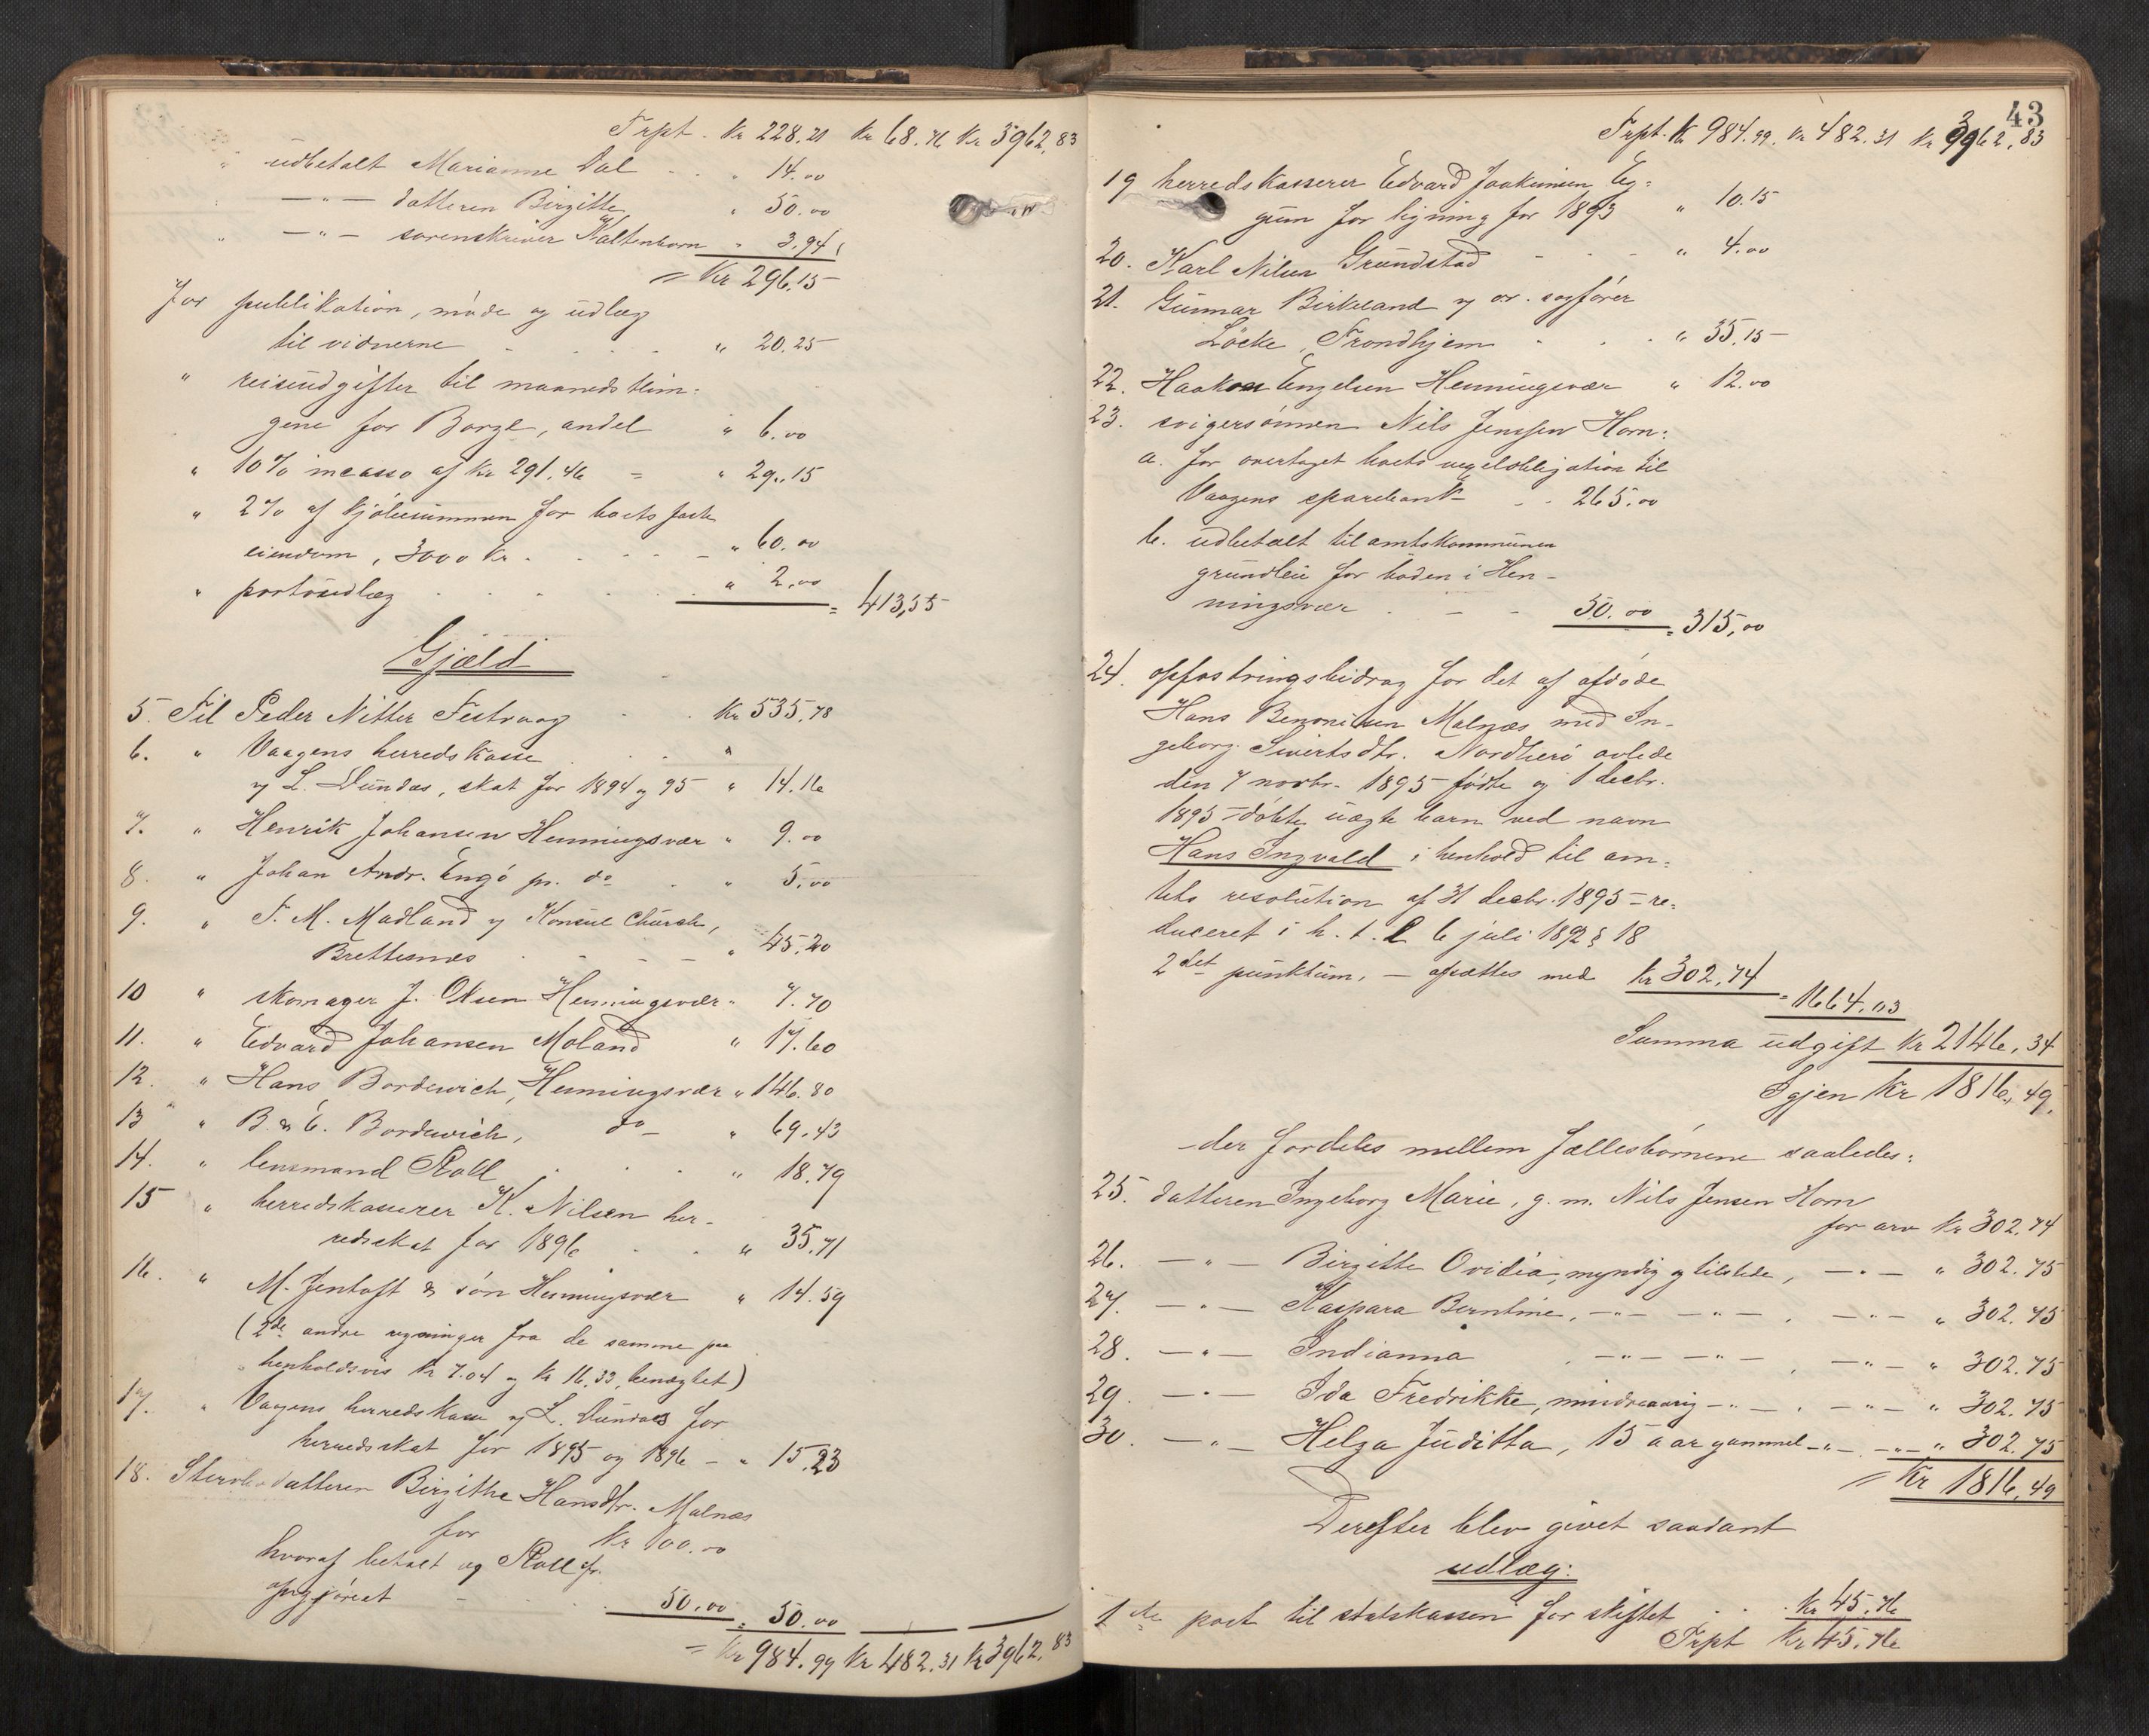 Frpt. Kr 228.21 Kr 68.76 Kr 3962.83
" udbetalt Marianne Dal . . " 14.00
" —"— datteren Birgitte " 50.00
" —"— sorenskriver Kaltenborn " 3.94
= Kr 296.15
for publikation, møde og udlæg
til vidnerne - . . . " 20.25
" reiseudgifter til maanedsthin-
gene for Borge, andel " 6.00
" 10% incasso af Kr 291.46 = " 29.15
" 2% af kjøbesummen for boets faste
eiendom, 3000 Kr . . . . - " 60.00
" portoudlæg . . . . . " 2.00 = 413,55
Gjæld
5. Til Peder Nitter Festvaag . . Kr 535.78
6. " Vaagens herredskasse . . . "
v L. Dundas, skat for 1894 og 95 " 14.16
7. " Henrik Johansen Henningsvær " 9.00
8. " Johan Andr. Engø pr. do . " 5.00
9. " F. M. Madland v Konsul Church,
Brettesnæs . - - - " 45.20
10 " skomager J. Olsen Henningsvær " 7.70
11. " Edvard Johansen Moland " 17.60
12. " Hans Bordewich, Henningsvær " 146.80
13 " B. & C. Bordewich, do- " 69.43
14. " lensmand Roll . . . " 18.79
15 " herredskasserer K. Nilsen her-
redsskat for 1896 . . " 35.71
16. " M. Jentoft & søn Henningsvær " 14.59
(2de andre regninger fra de samme paa
henholdsvis Kr 7.04 og Kr 16.33, benægtet)
17. " Vaagens herredskasse v L. Dundas for
herredsskat for 1895 og 1896 - " 15.23
18. Stervbodatteren Birgithe Hansdtr. Malnæs
for Kr 100.00
hvoraf betalt og Roll fr.
opgjøret - . . . 50.00 = 50.00
= Kr 984.99 Kr 482.31 Kr 3962.83
43
Frpt. Kr 984.99. Kr 482.31 Kr 3962.83
19 herredskasserer Edvard Joakimsen Eg-
gum for ligning for 1893 " 10.15
20. Karl Nilsen Grundstad - - - " 4.00
21. Gunnar Birkeland v o.r. sagfører
Löcke, Trondhjem - . . " 35.15
22. Haakon Engelsen Henningsvær " 12.00
23. svigersønnen Nils Jensen Horn:
a. for overtaget boets vexelobligation til
Vaagens sparebank - . 265.00
b. udbetalt til amtskommunen
grundleie for boden i Hen-
ningsvær . - - 50.00 = 315.00
24. opfostringsbidrag for det af afdøde
Hans Benonisen Malnæs med In-
geborg Sivertsdtr. Nordherø avlede
den 7 novbr. 1895 fødte og 1 decbr.
1895 døbte uægte barn ved navn
Hans Ingvald i henhold til am-
tets resolution af 31 decbr. 1895 - re-
duceret i h. t. L 6 juli 1892 § 18
2det punktum, - afsættes med Kr 302.74 = 1664.03
Summa udgift Kr 2146.34
Igjen Kr 1816.49.
- der fordeles mellem fællesbørnene saaledes:
25. datteren Ingeborg Marie, g. m. Nils Jensen Horn
for arv Kr 302.74
26. —"— Birgitte Ovidia, myndig og tilstede, —"— " 302.75
27. —"— Kaspara Berntine, —"— —"— , —"— " 302.75
28. —"— Indianna , —"— —"— , —"— " 302.75
29. —"— Ida Fredrikke, mindreaarig —"— , —"— " 302.75
30. —"— Helga Juditta, 15 aar gammel —"— , —"— " 302.75
= Kr 1816.49
Derefter blev givet saadant
udlæg:
1ste post til statskassen for skiftet . . Kr 45.76
Frpt Kr 45.76